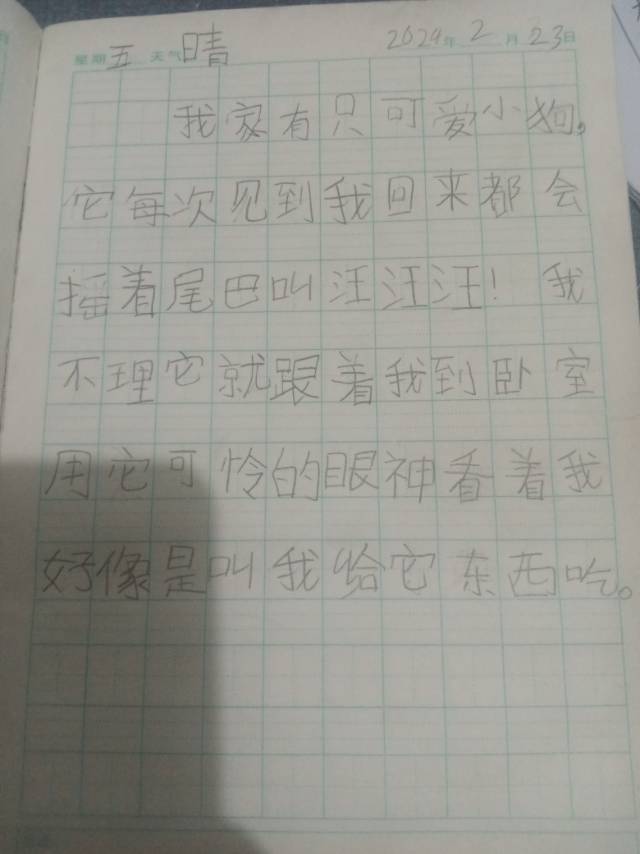 星期 五 天气 晴 2024年 2月 23日
我家有只可爱小狗。
它每次见到我回来都会
摇着尾巴叫汪汪汪！我
不理它就跟着我到卧室
用它可怜的眼神看着我
好像是叫我给它东西吃。